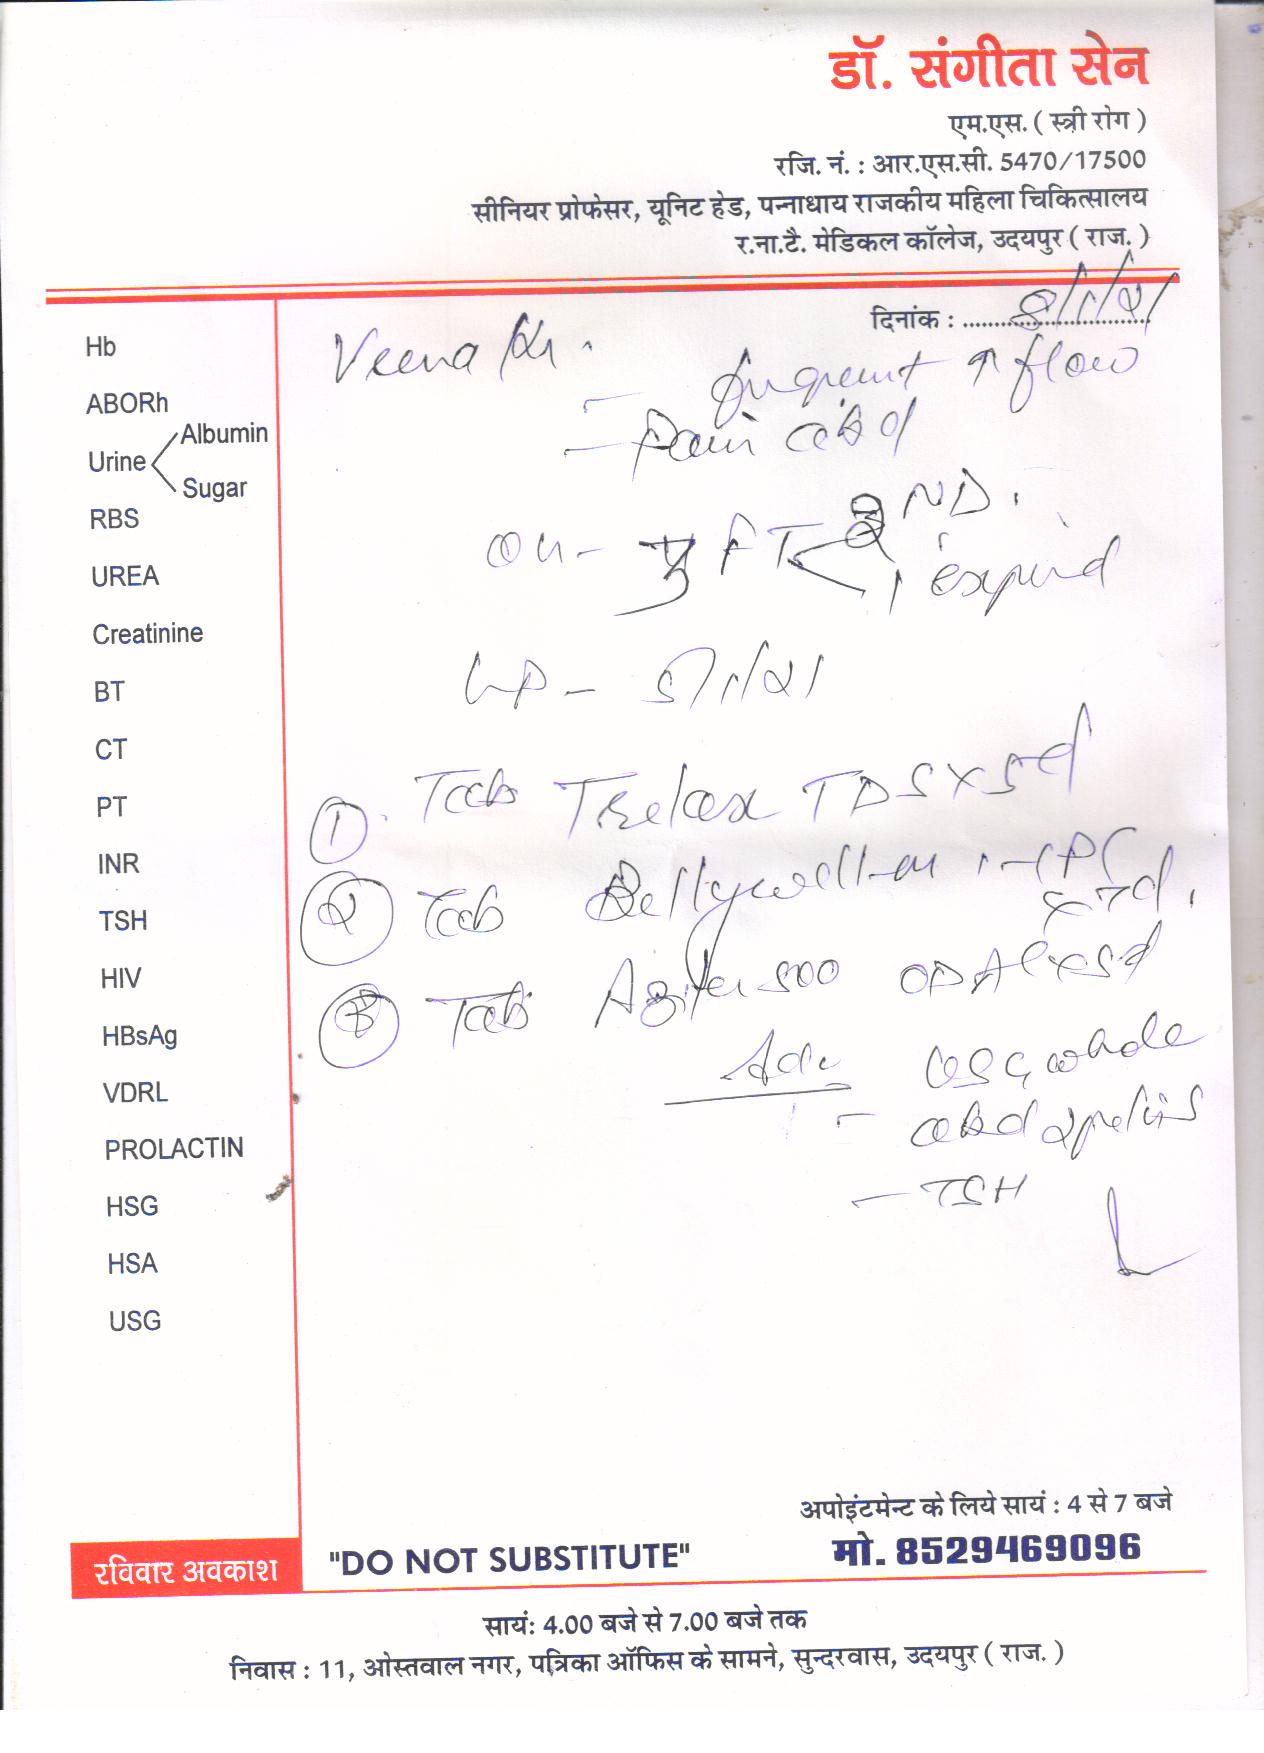 डॉ. संगीता सेन
एम.एस. ( स्त्री रोग )
रजि. नं. : आर.एस.सी. 5470/17500
सीनियर प्रोफेसर, यूनिट हेड, पन्नाधाय राजकीय महिला चिकित्सालय
र.ना.टै. मेडिकल कॉलेज, उदयपुर ( राज. )
दिनांक : 8/1/21
Hb
ABORh
Urine Albumin
Sugar
RBS
UREA
Creatinine
BT
CT
PT
INR
TSH
HIV
HBsAg
VDRL
PROLACTIN
HSG
HSA
USG
Veena
- flow
- Pain abd
FT ND.
expired
LMP - 5/1/21
① Tab Trelax TDS x 5d
② Tab Bellywell-M 1-1 PC
x 7d.
③ Tab 500 OD x 5d
Adv USG whole
- abd & pelvis
- TSH
अपोइंटमेन्ट के लिये सायं : 4 से 7 बजे
मो. 8529469096
रविवार अवकाश
"DO NOT SUBSTITUTE"
सायं: 4.00 बजे से 7.00 बजे तक
निवास : 11, ओस्तवाल नगर, पत्रिका ऑफिस के सामने, सुन्दरवास, उदयपुर ( राज. )